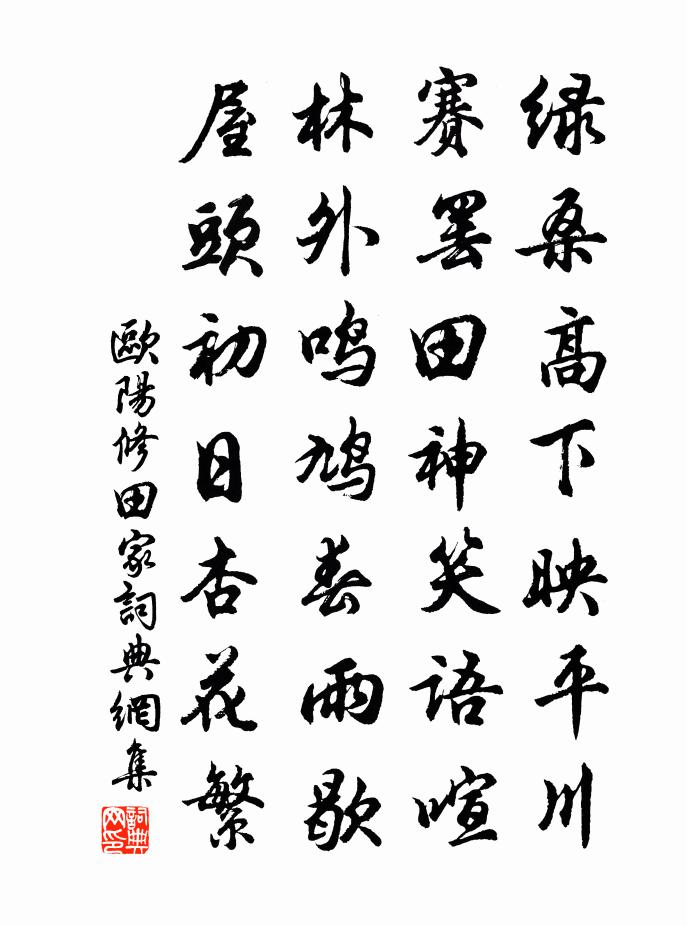 绿桑高下映平川
賽罢田神笑語喧
林外鳴鳩春雨歇
屋頭初日杏花繁
歐陽修田家詞典網集
詞典网印